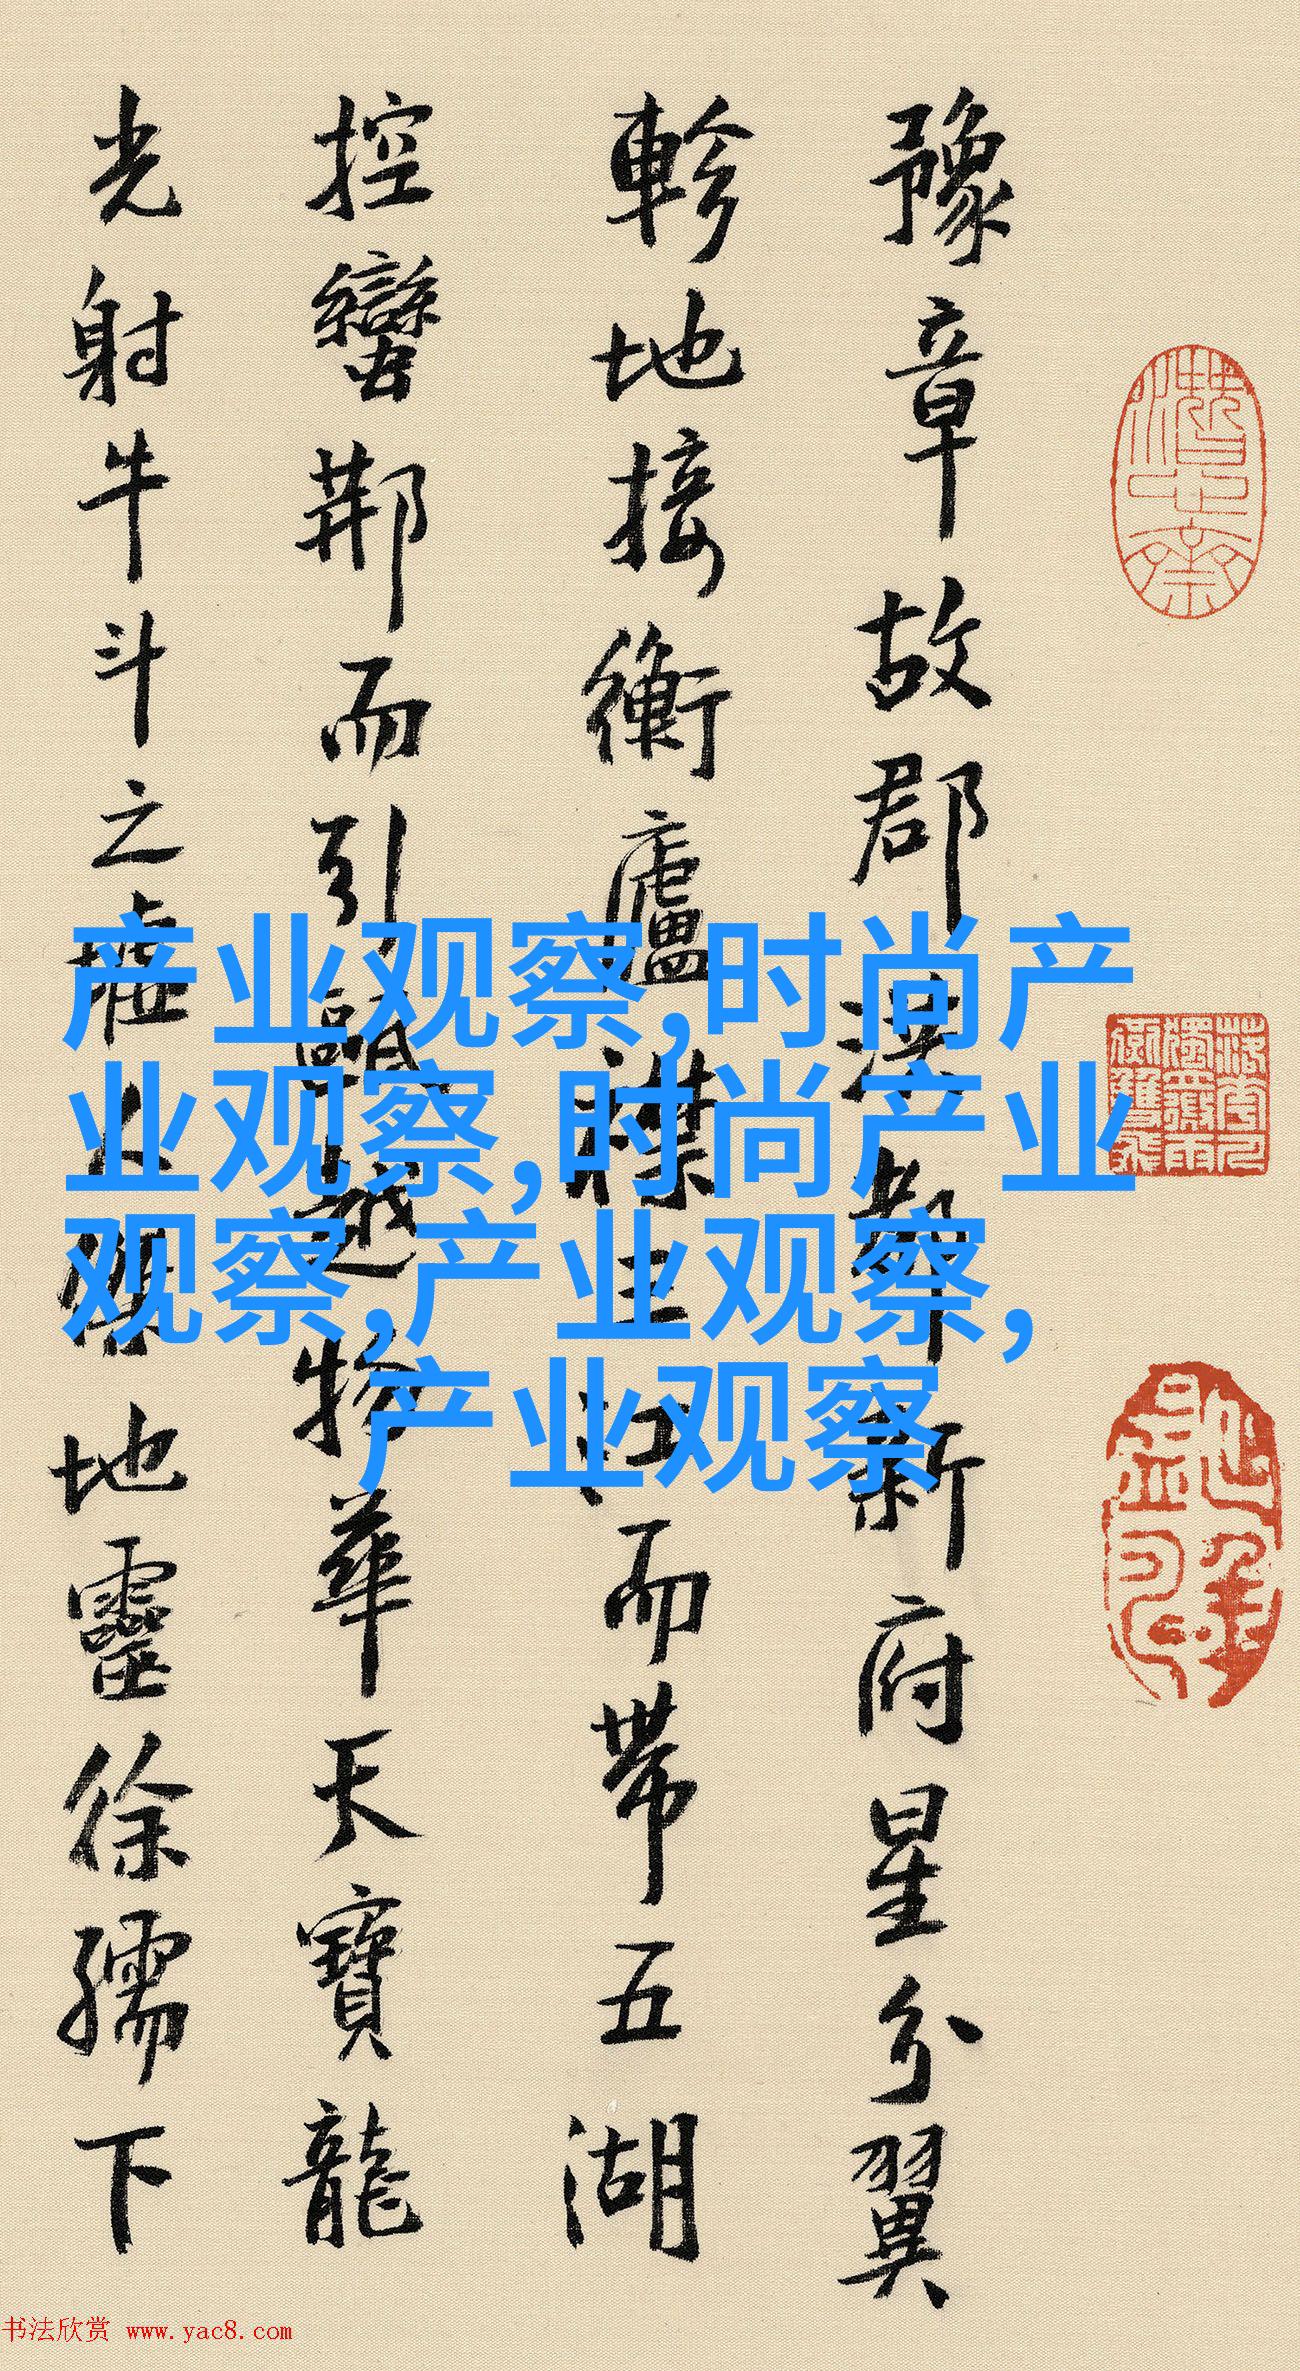 豫章故郡洪都新府星分翼
軫地接衡廬襟三江而帶五湖
控蠻荆而引甌越物華天寶龍
光射牛斗之墟人傑地靈徐孺下
产业观察,时尚产
业观察,时尚产业
观察,产业观察,
产业观察
书法欣赏 www.yac8.com